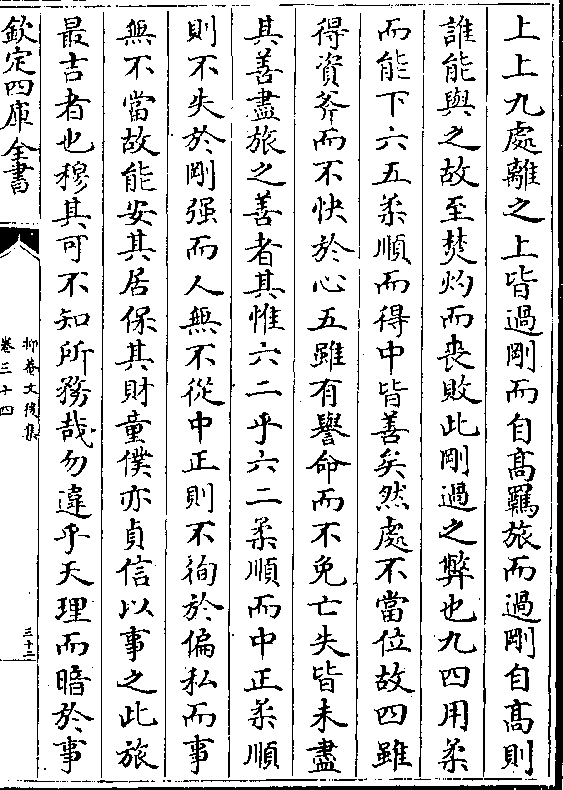 上上九處離之上皆過剛而自髙羈旅而過剛自髙則
誰能與之故至焚灼而喪敗此剛過之弊也九四用柔
而能下六五柔順而得中皆善矣然處不當位故四雖
得資斧而不快於心五雖有譽命而不免亡失皆未盡
其善盡旅之善者其惟六二乎六二柔順而中正柔順
則不失於剛强而人無不從中正則不徇於偏私而事
無不當故能安其居保其財童僕亦貞信以事之此旅
最吉者也穆其可不知所務哉勿違乎天理而暗於事
欽定四庫全書
抑菴文後集
卷三十四
三十二